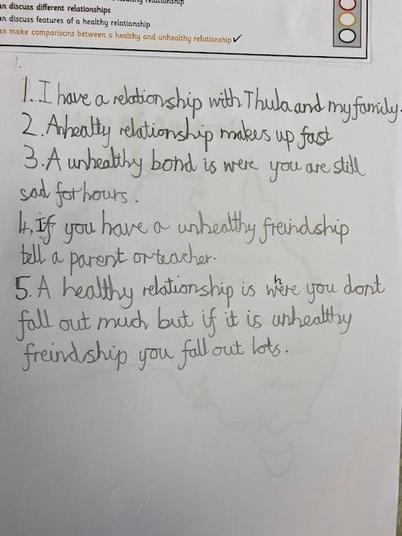 healthy relationship
an discuss different relationships
an discuss features of a healthy relationship
an make comparisons between a healthy and unhealthy relationship ✓
1. I have a relationship with Thula and my family.
2. A healty relationship makes up fast
3. A unhealthy bond is were you are still
sad for hours.
4. If you have a unhealthy freindship
tell a parent or teacher.
5. A healthy relationship is where you dont
fall out much but if it is unhealthy
freindship you fall out lots.